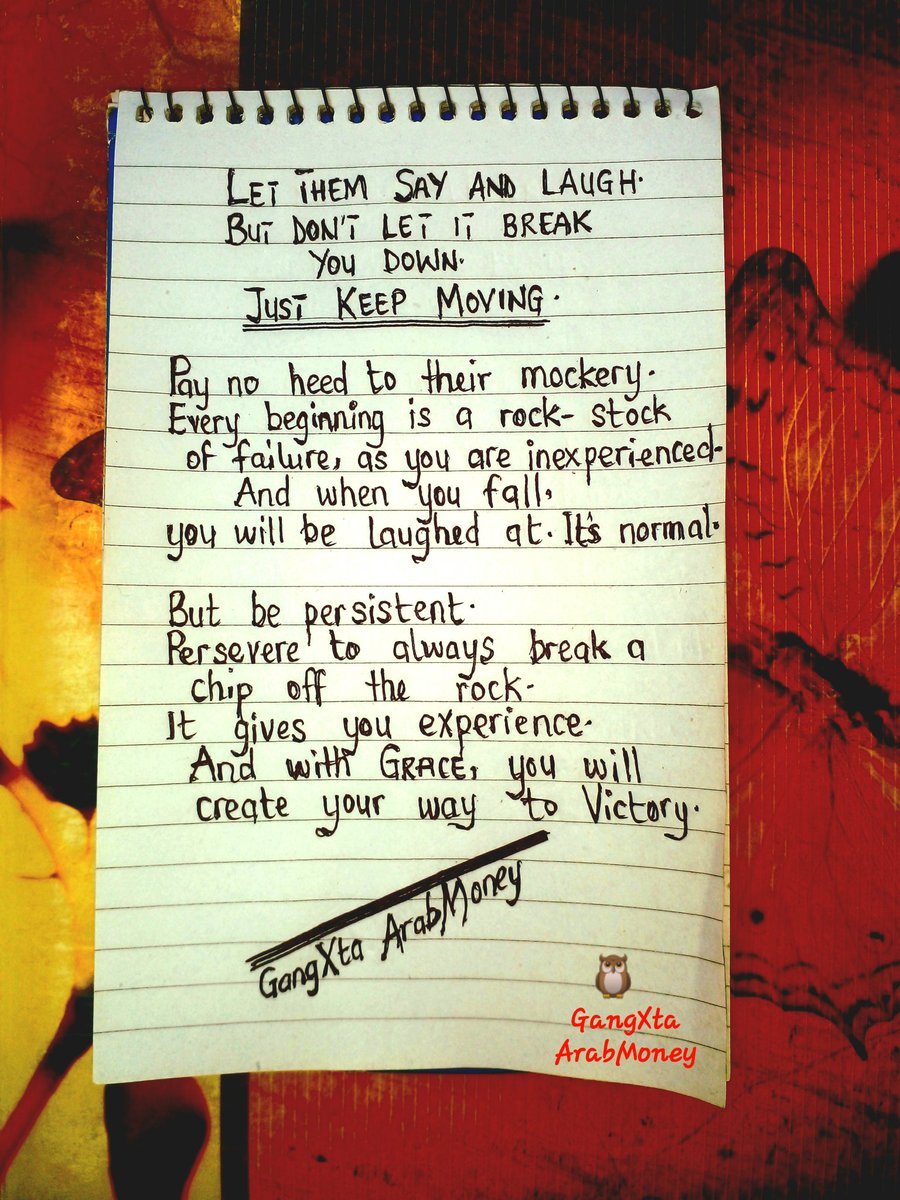 LET THEM SAY AND LAUGH.
BUT DON'T LET IT BREAK
YOU DOWN.
JUST KEEP MOVING.
Pay no heed to their mockery.
Every beginning is a rock-stock
of failure, as you are inexperienced.
And when you fall,
you will be laughed at. It's normal.
But be persistent.
Persevere to always break a
chip off the rock.
It gives you experience.
And with GRACE, you will
create your way to Victory.
GangXta ArabMoney
GangXta
ArabMoney